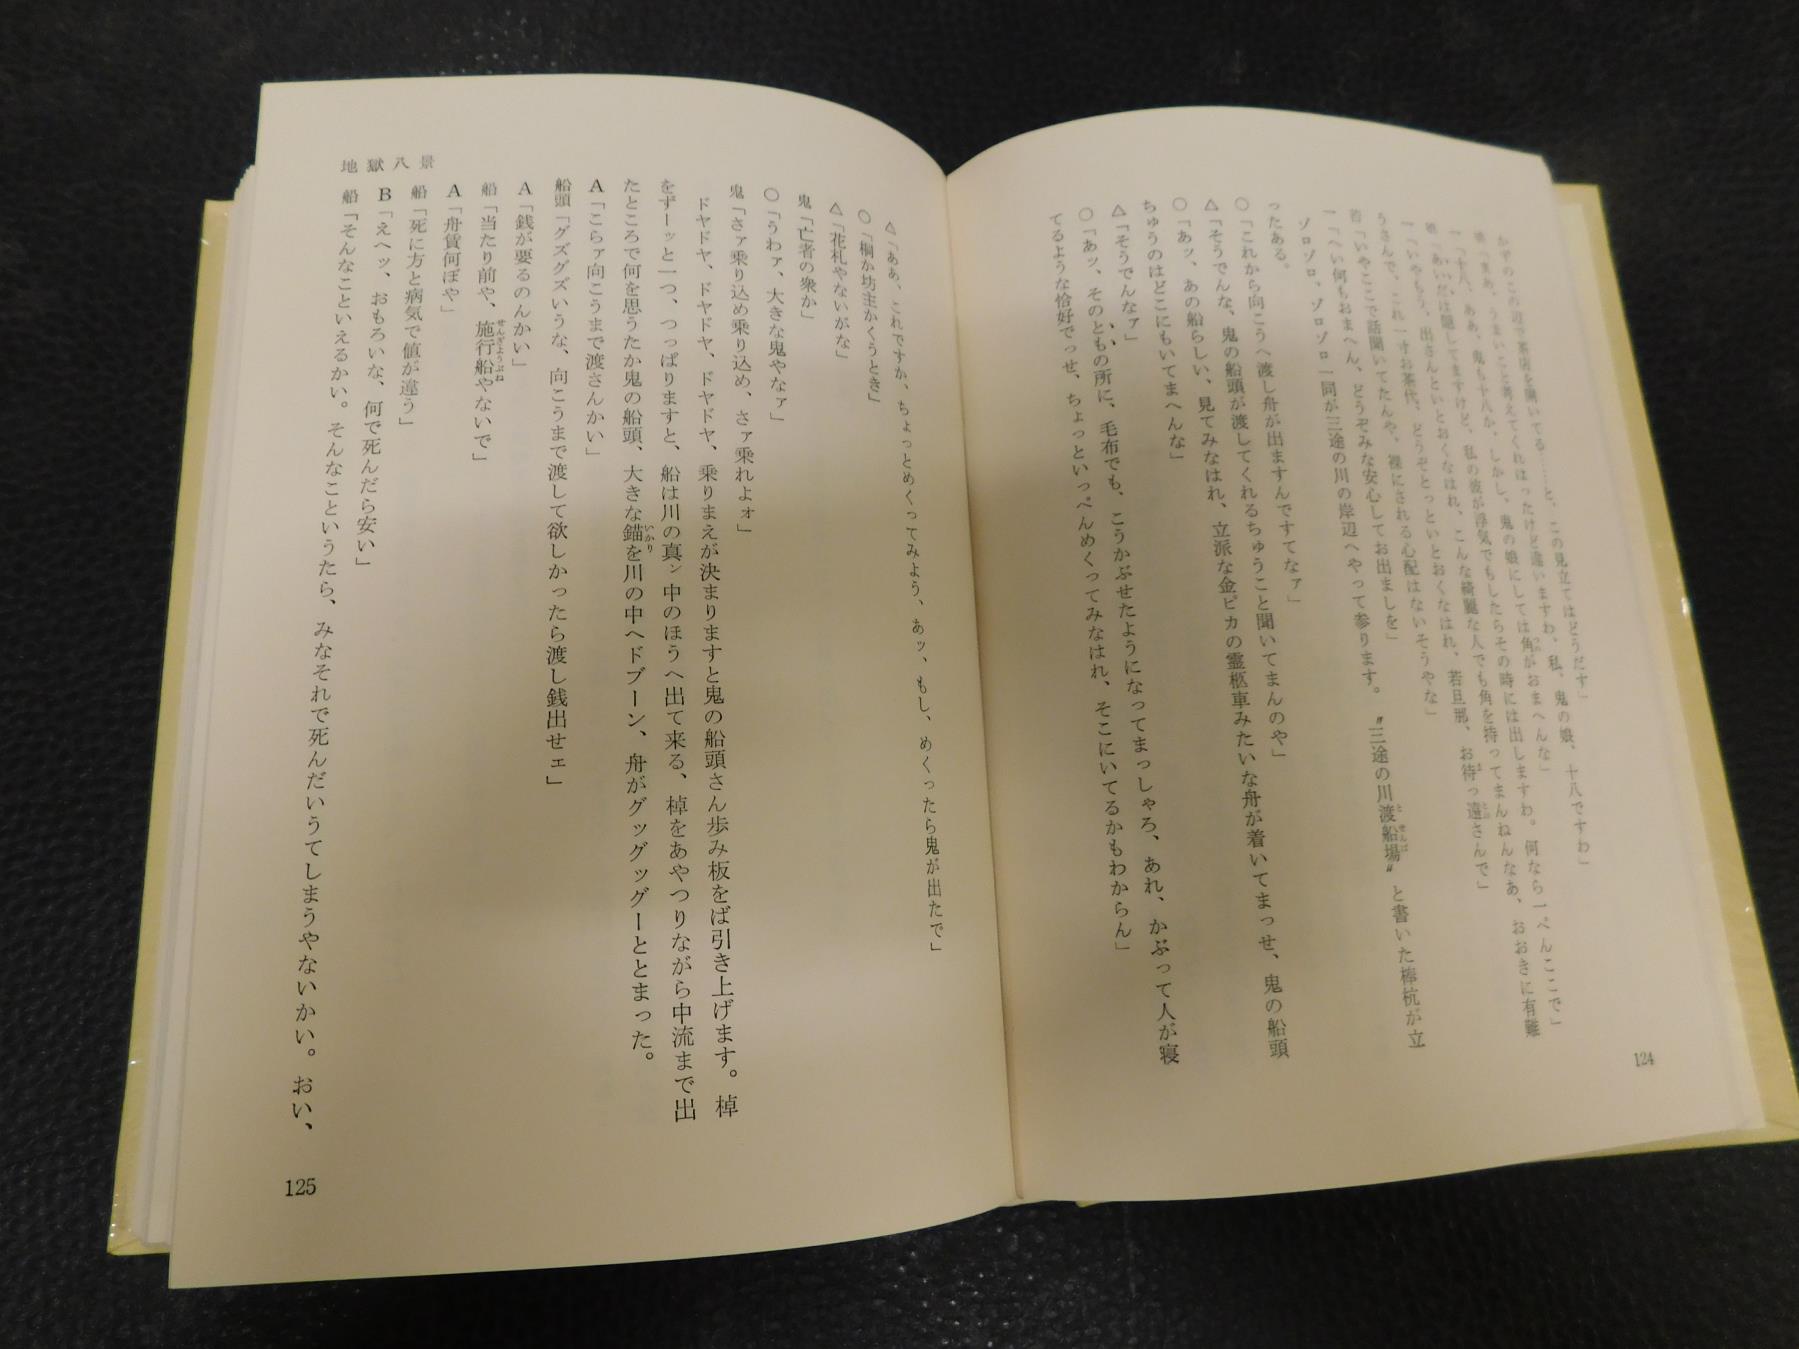 かでのこの辺で茶店を開いてる……と、この見立てはどうだす」
娘「まあ、うまいこと考えてくれはったけど違いますわ、私、鬼の娘、十八ですわ」
一「十八、ああ、鬼も十八か、しかし、鬼の娘にしては角がおまへんな」
娘「あいだは隠してますけど、私の彼が浮気でもしたらその時には出しますわ。何なら一ぺんここで」
一「いやもう、出さんといとおくなはれ、こんな綺麗な人でも角を持ってまんねんなあ、おおきに有難
うさんで、これ一寸お茶代、どうぞとっといとおくなはれ、若旦那、お待っ遠さんで」
若「いやここで話聞いてたんや、裸にされる心配はないそうやな」
一「へい何もおまへん、どうぞみな安心してお出ましを」
ゾロゾロ、ゾロゾロ一同が三途の川の岸辺へやって参ります。〝三途の川渡船場〟と書いた棒杭が立
ったある。
「これから向こうへ渡し舟が出ますんですてなァ」
○「これから向こうへ渡してくれるちゅうこと聞いてまんのや」
△「そうでんな、鬼の船頭が渡してくれるちゅうこと聞いてまんのや」
○「あッ、あの船らしい、見てみなはれ、立派な金ピカの霊柩車みたいな舟が着いてまっせ、鬼の船頭
ちゅうのはどこにもいてまへんな」
△「そうでんなァ」
○「あッ、そのともの所に、毛布でも、こうかぶせたようになってまっしゃろ、あれ、かぶって人が寝
てるような恰好でっせ、ちょっといっぺんめくってみなはれ、そこにいてるかもわからん」
124
△「ああ、これですか、ちょっとめくってみよう、あッ、もし、めくったら鬼が出たで」
○「桐か坊主かくうとき」
△「花札やないがな」
鬼「亡者の衆か」
○「うわァ、大きな鬼やなァ」
鬼「さァ乗り込め乗り込め、さァ乗れよォ」
ドヤドヤ、ドヤドヤ、ドヤドヤ、乗りまえが決まりますと鬼の船頭さん歩み板をば引き上げます。棹
をずーッと一つ、つっぱりますと、船は川の真ン中のほうへ出て来る、棹をあやつりながら中流まで出
たところで何を思うたか鬼の船頭、大きな錨を川の中へドブーン、舟がグッグッグーととまった。
いかり
A「こらァ向こうまで渡さんかい」
船頭「グズグズいうな、向こうまで渡して欲しかったら渡し銭出せェ」
A「銭が要るのんかい」
船「当たり前や、施行船やないで」
せんぎようぶね
A「舟賃何ぼや」
船「死に方と病気で値が違う」
B「えヘッ、おもろいな、何で死んだら安い」
船「そんなこといえるかい。そんなこというたら、みなそれで死んだいうてしまうやないかい。おい、
地獄八景
125